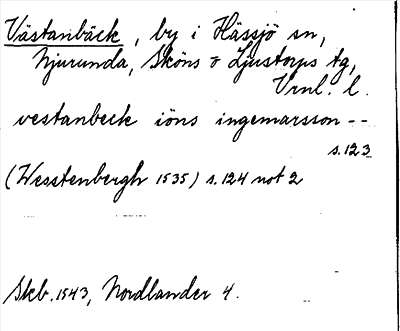 Västanbäck, by i Hässjö sn,
Njurunda, Sköns o Ljustorps tg,
Vrnl. l.
vestanbeck iöns ingemarsson --
s.123
(Wesstenbergh 1535) s.124 not 2
Skb. 1543, Nordlander 4.